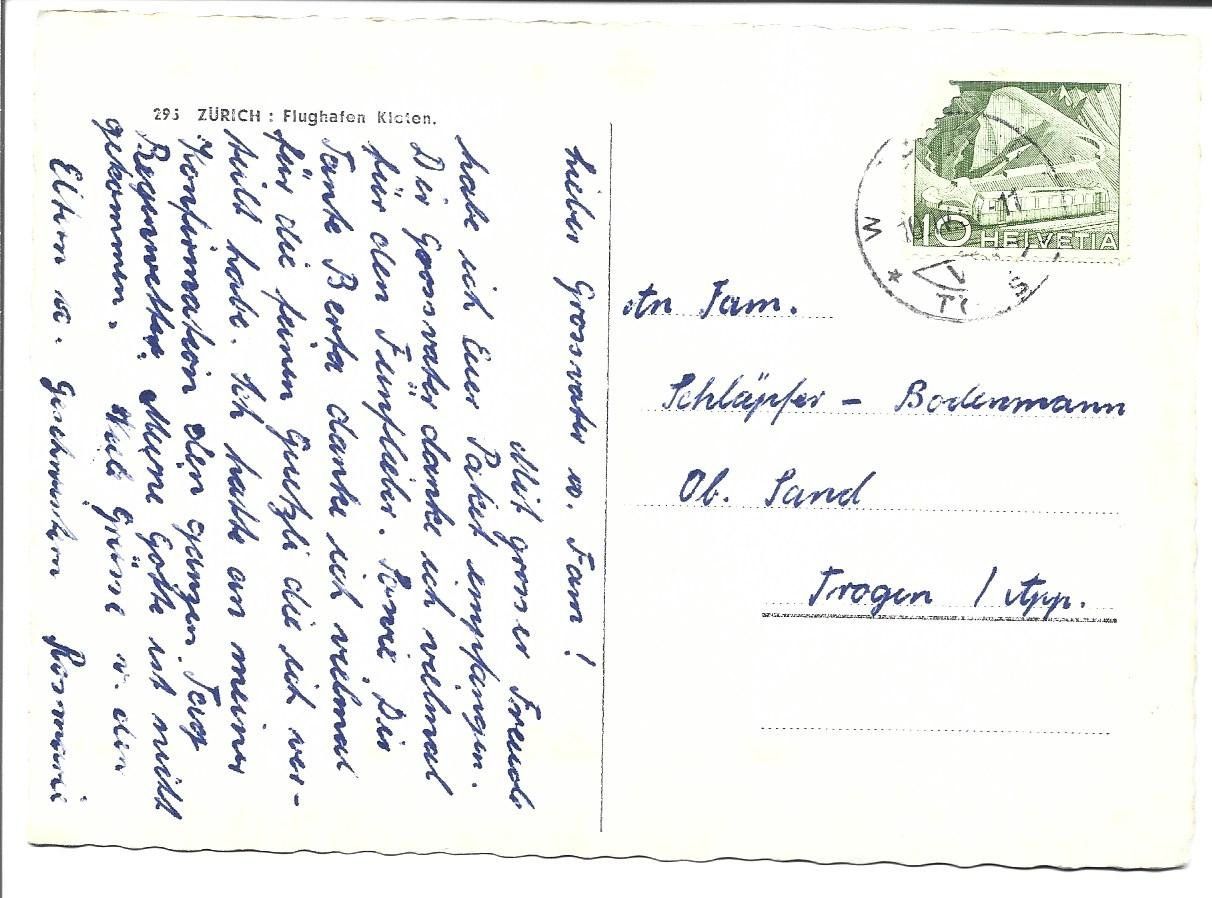 295 ZÜRICH : Flughafen Kloten.
Lieber Grossvater u. Fam!
Mit grosser Freude
habe ich Euer Paket empfangen.
Dir Grossvater danke ich vielmal
für den Fünfliber. Sowie Dir
Tante Berta danke ich vielmal
für die feinen Guetzli die ich ver-
teilt habe. Ich hatte an meiner
Konfirmation den ganzen Tag
Regenwetter. Meine Gotte ist nicht
gekommen. Viele Grüsse v. den
Eltern u. Geschwistern Rosmarie
10 HELVETIA
An Fam.
Schläpfer - Bodenmann
Ob. Sand
Trogen / App.